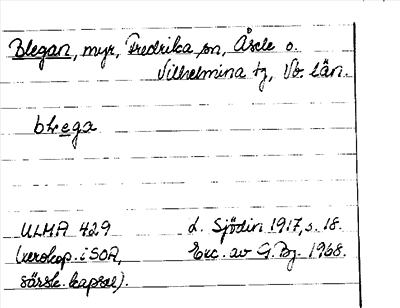 Blegan, myr, Fredrika sn, Åsele o.
Vilhelmina tg, Vb. län.
blega
ULMA 429 L. Sjödin 1917, s. 18.
(xerokop. i SOA, Exc. av G. Bg. 1968.
särsk. kapsel).